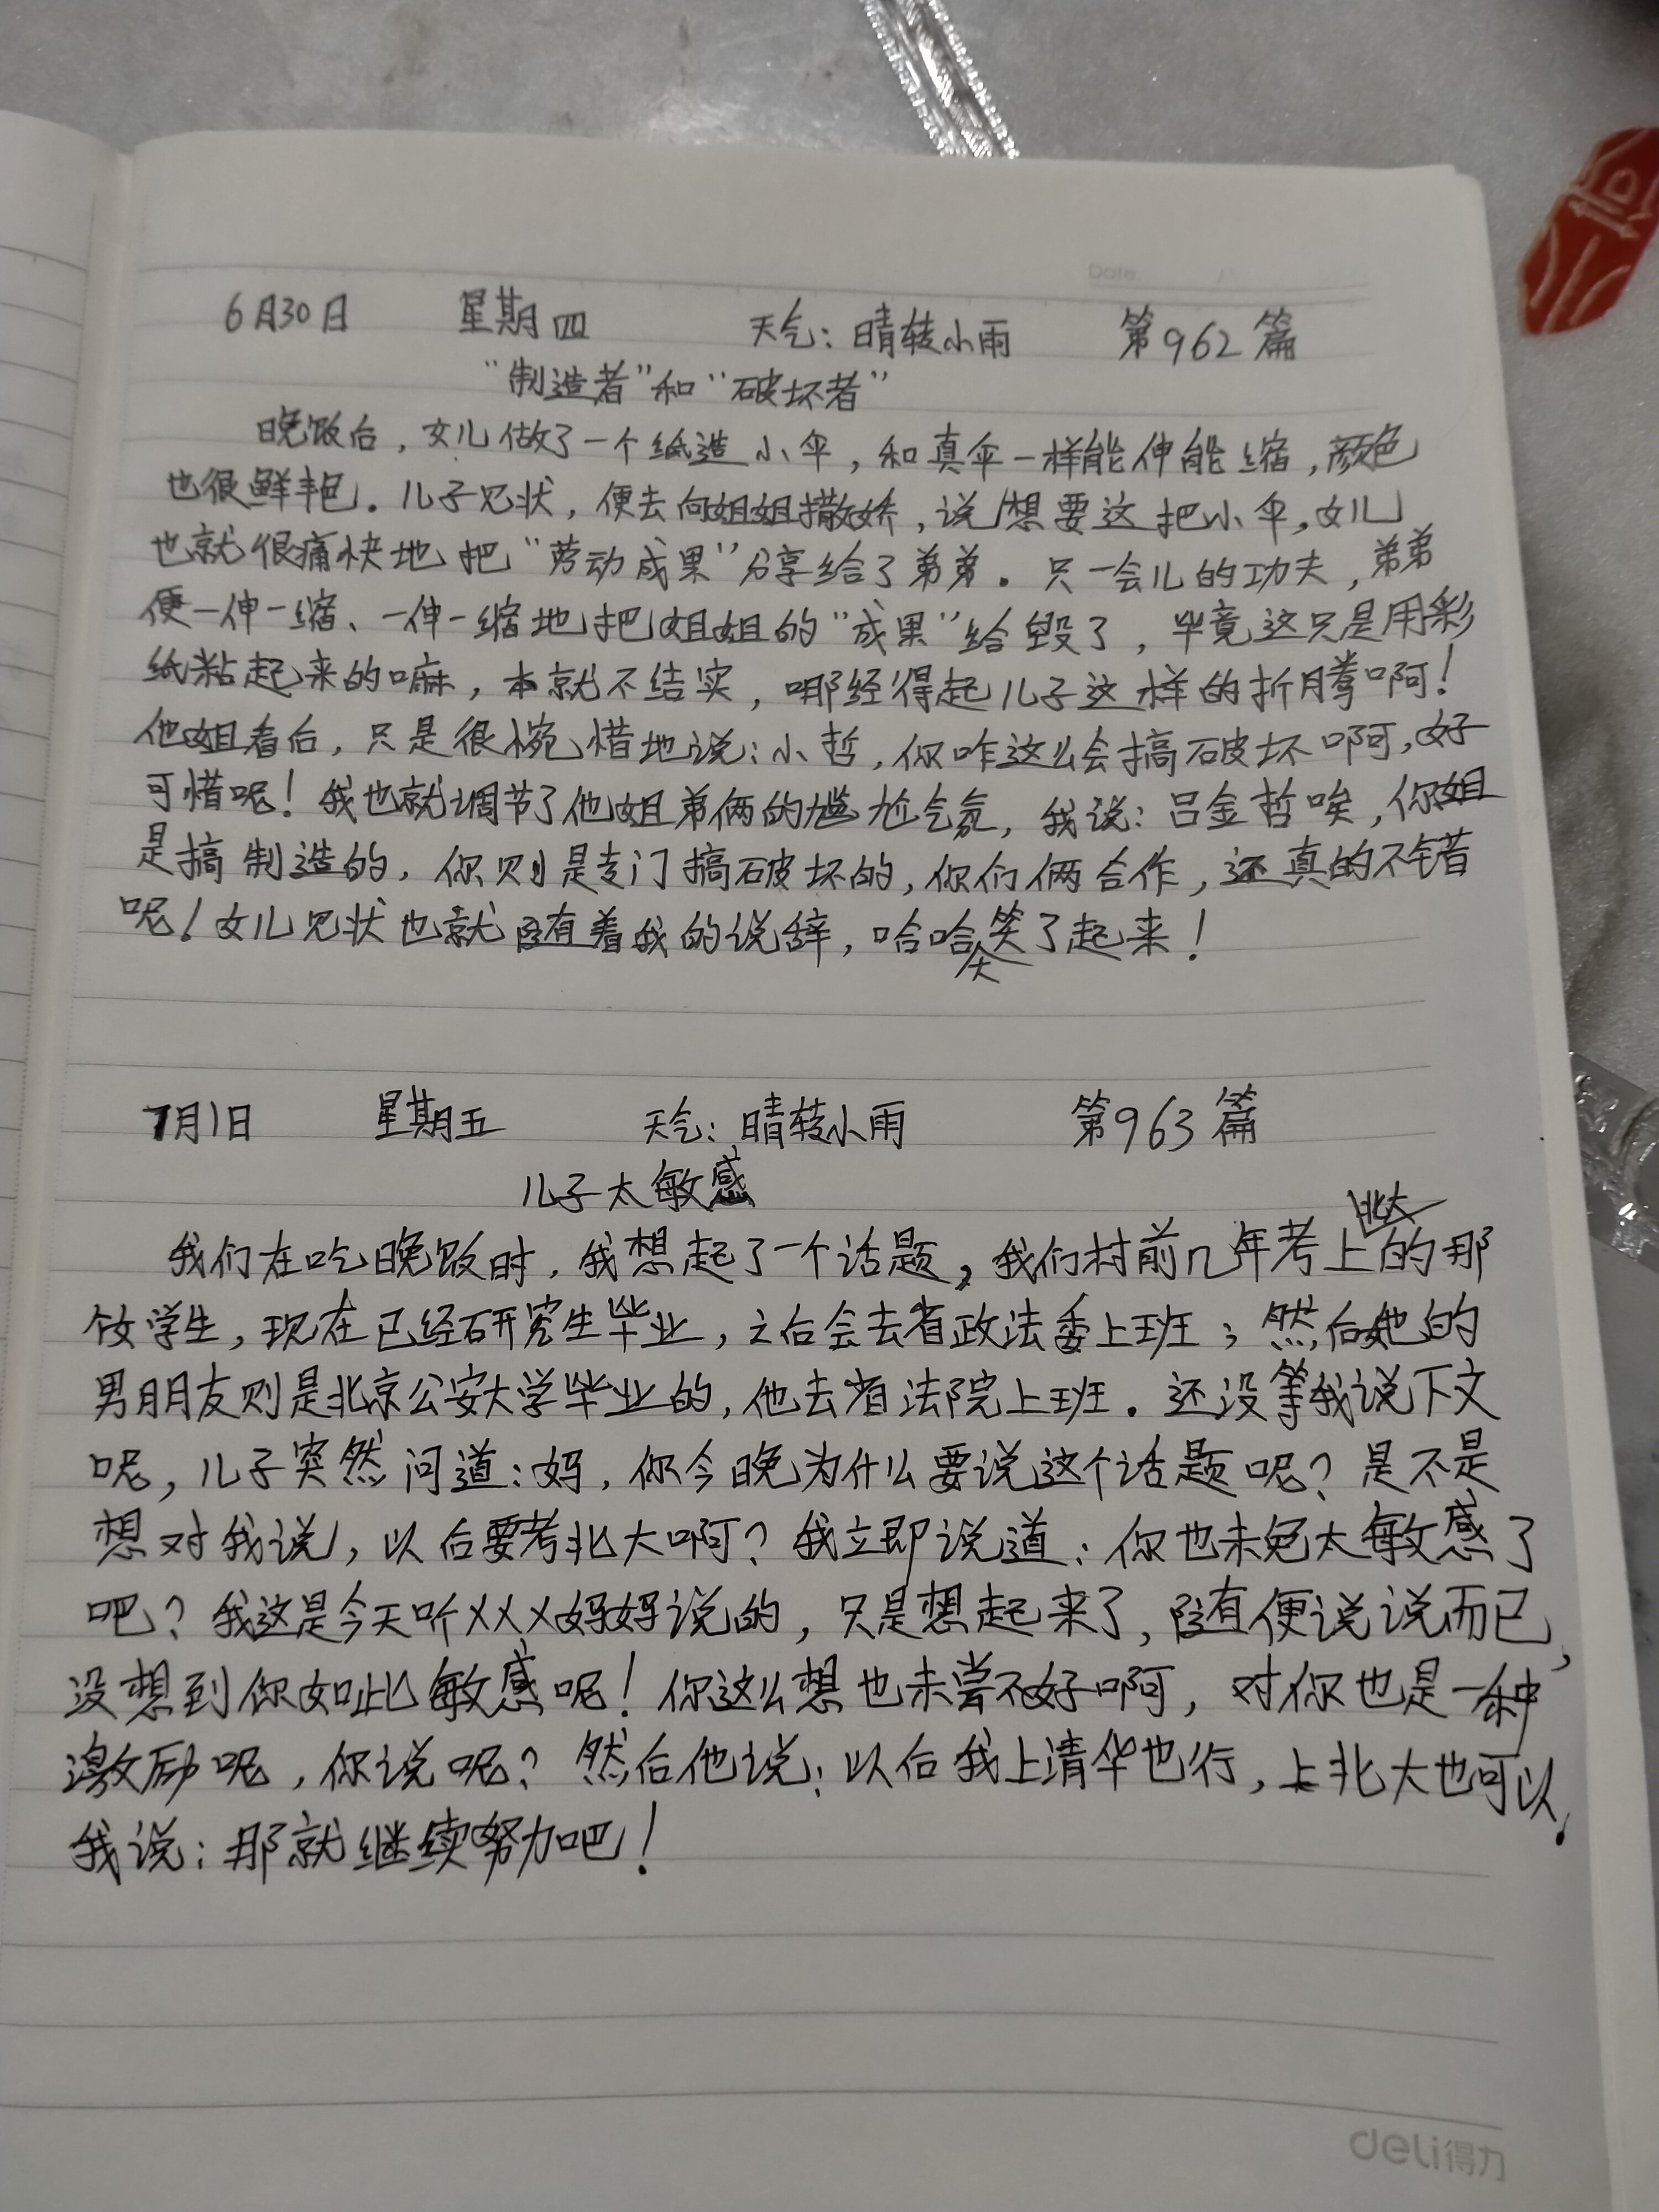 Date /
6月30日 星期四 天气：晴转小雨 第962篇
“制造者”和“破坏者”
晚饭后，女儿做了一个纸造小伞，和真伞一样能伸能缩，颜色
也很鲜艳。儿子见状，便去向姐姐撒娇，说想要这把小伞，女儿
也就很痛快地把“劳动成果”分享给了弟弟。只一会儿的功夫，弟弟
便一伸一缩、一伸一缩地把姐姐的“成果”给毁了，毕竟这只是用彩
纸粘起来的嘛，本就不结实，哪经得起儿子这样的折腾啊！
他姐看后，只是很惋惜地说：小哲，你咋这么会搞破坏啊，好
可惜呢！我也就调节了他姐弟俩的尴尬气氛，我说：吕金哲唉，你姐
是搞制造的，你则是专门搞破坏的，你们俩合作，还真的不错
呢！女儿见状也就随着我的说辞，哈哈大笑了起来！
7月1日 星期五 天气：晴转小雨 第963篇
儿子太敏感
我们在吃晚饭时，我想起了一个话题，我们村前几年考上北大的那
个女学生，现在已经研究生毕业，之后会去省政法委上班；然后她的
男朋友则是北京公安大学毕业的，他去省法院上班。还没等我说下文
呢，儿子突然问道：妈，你今晚为什么要说这个话题呢？是不是
想对我说，以后要考北大啊？我立即说道：你也未免太敏感了
吧？我这是今天听XXX妈妈说的，只是想起来了，随便说说而已，
没想到你如此敏感呢！你这么想也未尝不好啊，对你也是一种
激励呢，你说呢？然后他说：以后我上清华也行，上北大也可以，
我说：那就继续努力吧！
deli得力